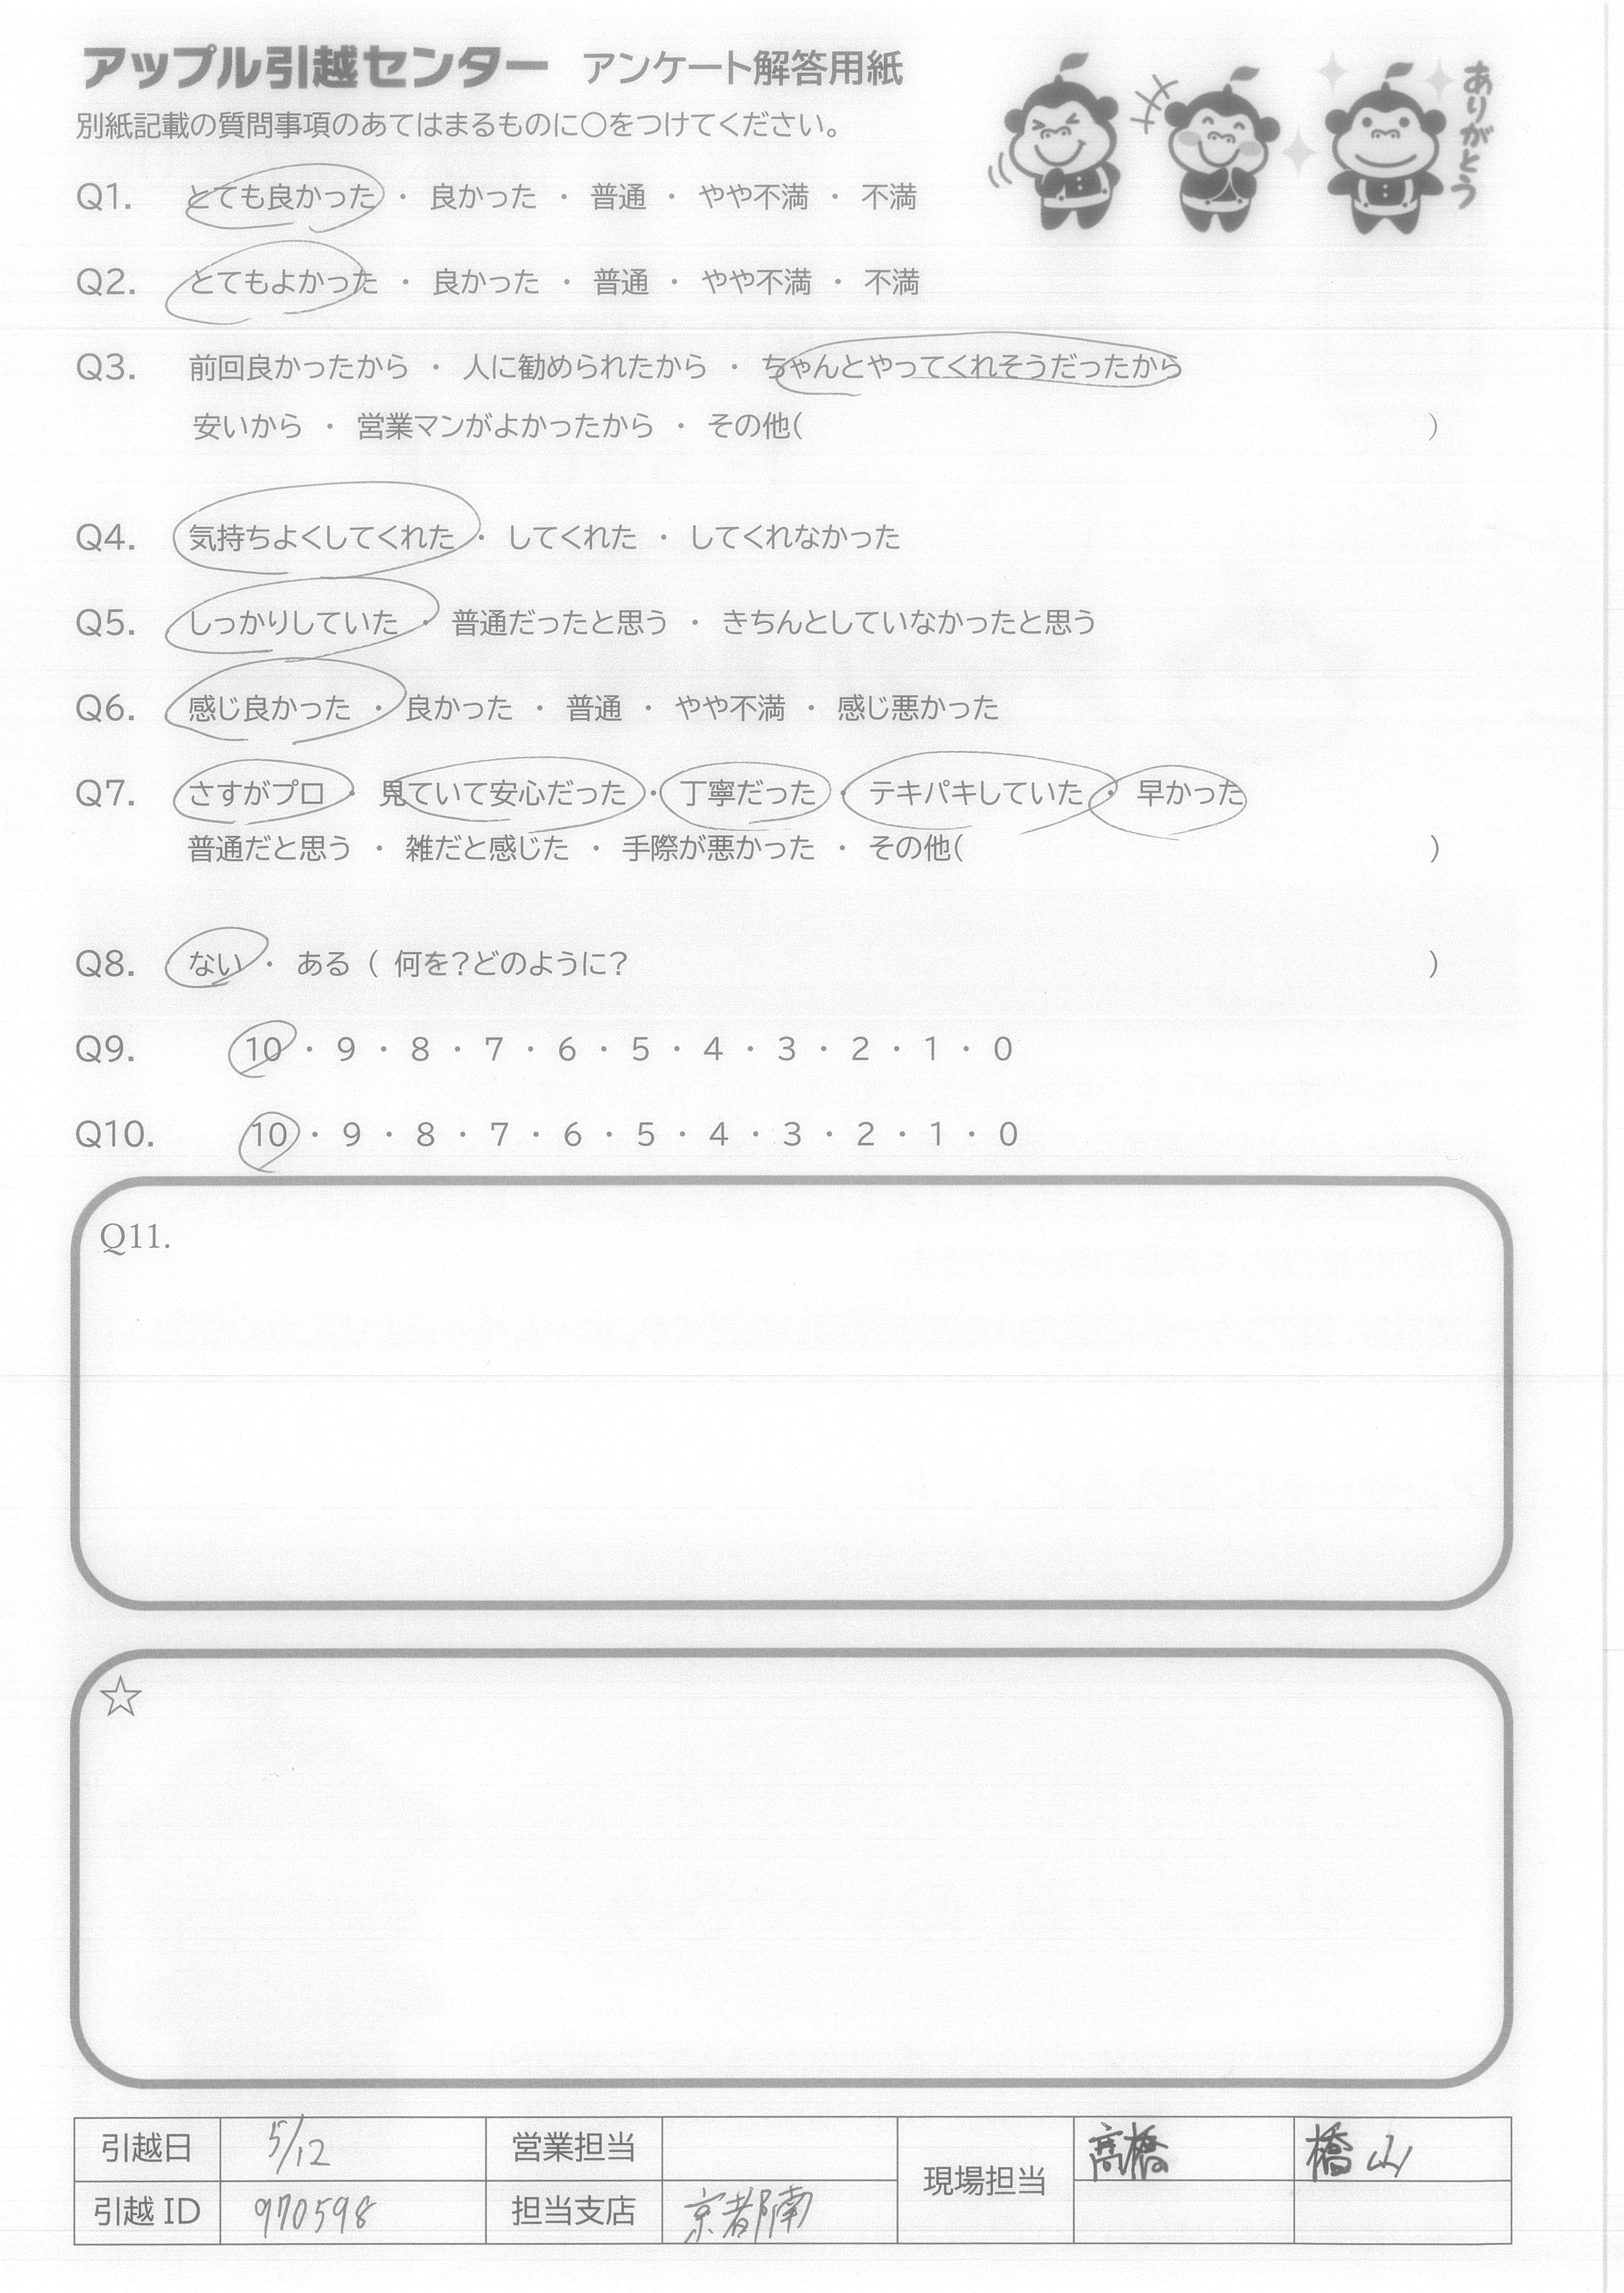 アップル引越センター アンケート解答用紙
ありがとう
別紙記載の質問事項のあてはまるものに〇をつけてください。
Q1. とても良かった ・ 良かった ・ 普通 ・ やや不満 ・ 不満
Q2. とてもよかった ・ 良かった ・ 普通 ・ やや不満 ・ 不満
Q3. 前回良かったから ・ 人に勧められたから ・ ちゃんとやってくれそうだったから
安いから ・ 営業マンがよかったから ・ その他( )
Q4. 気持ちよくしてくれた ・ してくれた ・ してくれなかった
Q5. しっかりしていた ・ 普通だったと思う ・ きちんとしていなかったと思う
Q6. 感じ良かった ・ 良かった ・ 普通 ・ やや不満 ・ 感じ悪かった
Q7. さすがプロ ・ 見ていて安心だった ・ 丁寧だった ・ テキパキしていた ・ 早かった
普通だと思う ・ 雑だと感じた ・ 手際が悪かった ・ その他( )
Q8. ない ・ ある ( 何を?どのように? )
Q9. 10 ・ 9 ・ 8 ・ 7 ・ 6 ・ 5 ・ 4 ・ 3 ・ 2 ・ 1 ・ 0
Q10. 10 ・ 9 ・ 8 ・ 7 ・ 6 ・ 5 ・ 4 ・ 3 ・ 2 ・ 1 ・ 0
Q11.
☆
引越日 5/12 営業担当 現場担当 髙橋 橋山
引越 ID 970598 担当支店 京都南